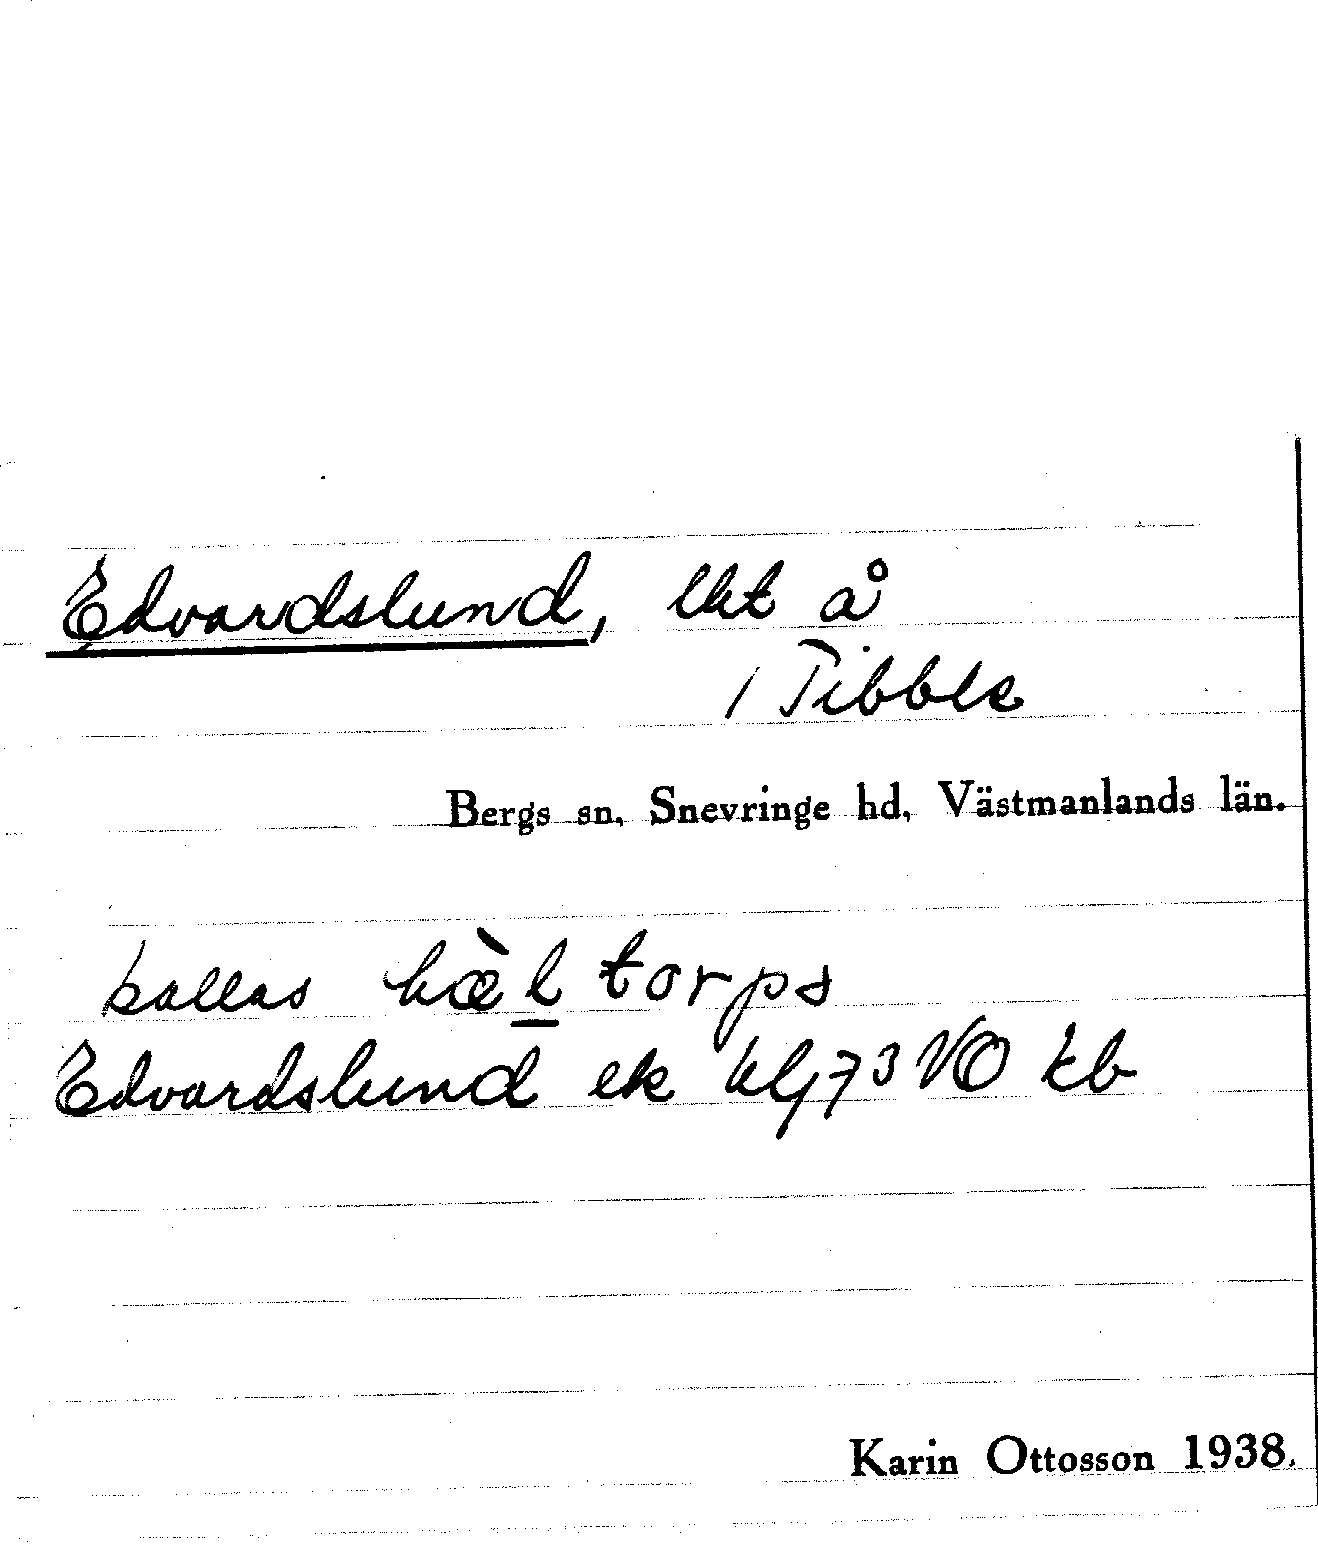 Edvardslund, lht å
1 Tibble
Bergs sn, Snevringe hd, Västmanlands län.
kallas hæ̀l torps
Edvardslund ek 73 VO tb
Karin Ottosson 1938.